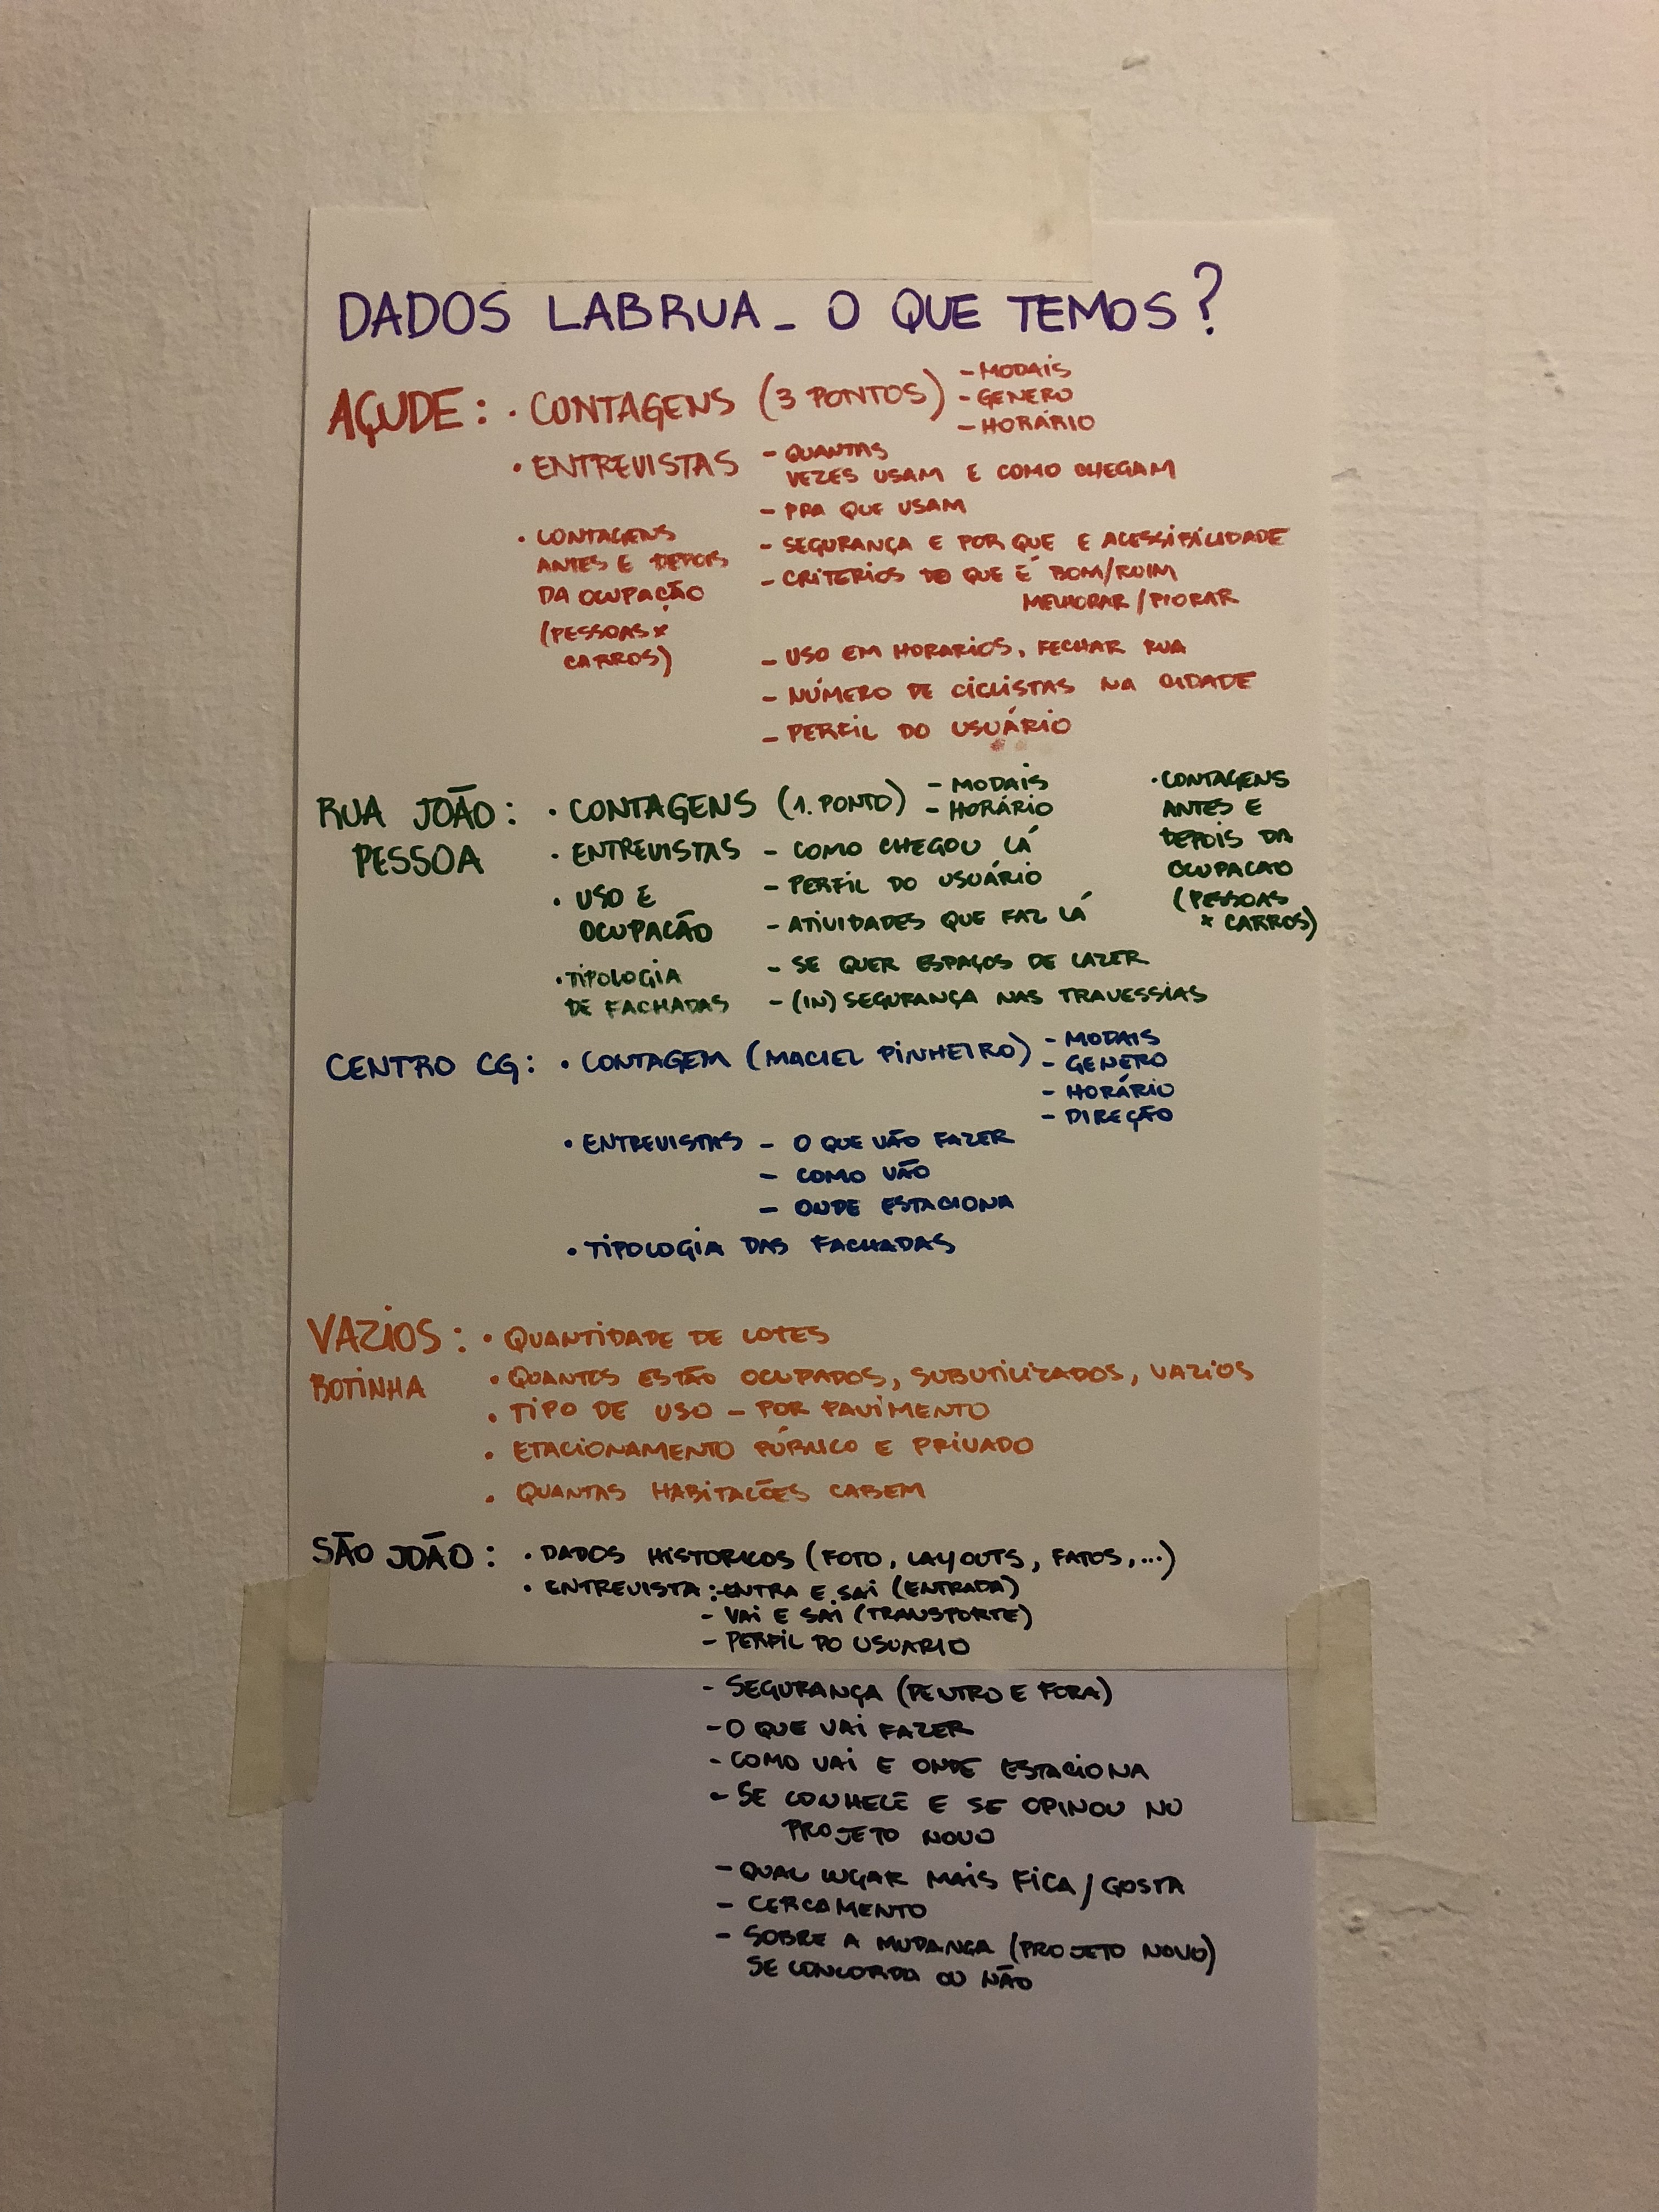 DADOS LABRUA - O QUE TEMOS?
AÇUDE: • CONTAGENS (3 PONTOS) - MODAIS
- GENERO
- HORÁRIO
• ENTREVISTAS - QUANTAS
VEZES USAM E COMO CHEGAM
- PRA QUE USAM
• CONTAGENS
ANTES E DEPOIS
DA OCUPAÇÃO
(PESSOAS X
CARROS)
- SEGURANÇA E POR QUE E ACESSIBILIDADE
- CRITERIOS DO QUE É BOM/RUIM
MELHORAR/PIORAR
- USO EM HORARIOS, FECHAR RUA
- NÚMERO DE CICLISTAS NA CIDADE
- PERFIL DO USUÁRIO
RUA JOÃO: • CONTAGENS (1. PONTO) - MODAIS
PESSOA
- HORÁRIO
• ENTREVISTAS - COMO CHEGOU LÁ
- PERFIL DO USUÁRIO
- ATIVIDADES QUE FAZ LÁ
- SE QUER ESPAÇOS DE LAZER
- (IN)SEGURANÇA NAS TRAVESSIAS
• USO E
OCUPAÇÃO
• TIPOLOGIA
DE FACHADAS
• CONTAGENS
ANTES E
DEPOIS DA
OCUPACAO
(PESSOAS
X CARROS)
CENTRO CG: • CONTAGEM (MACIEL PINHEIRO) - MODAIS
- GENERO
- HORÁRIO
- DIREÇÃO
• ENTREVISTAS - O QUE VÃO FAZER
- COMO VÃO
- ONDE ESTACIONA
• TIPOLOGIA DAS FACHADAS
VAZIOS: • QUANTIDADE DE LOTES
BOTINHA
• QUANTOS ESTÃO OCUPADOS, SUBUTILIZADOS, VAZIOS
• TIPO DE USO - POR PAVIMENTO
• ETACIONAMENTO PÚBLICO E PRIVADO
• QUANTAS HABITAÇÕES CABEM
SÃO JOÃO: • DADOS HISTORICOS (FOTO, LAYOUTS, FATOS,...)
• ENTREVISTA: - ENTRA E SAI (ENTRADA)
- VAI E SAI (TRANSPORTE)
- PERFIL DO USUARIO
- SEGURANÇA (DENTRO E FORA)
- O QUE VAI FAZER
- COMO VAI E ONDE ESTACIONA
- SE CONHECE E SE OPINOU NO
PROJETO NOVO
- QUAL LUGAR MAIS FICA/GOSTA
- CERCAMENTO
- SOBRE A MUDANÇA (PROJETO NOVO)
SE CONCORDA OU NÃO